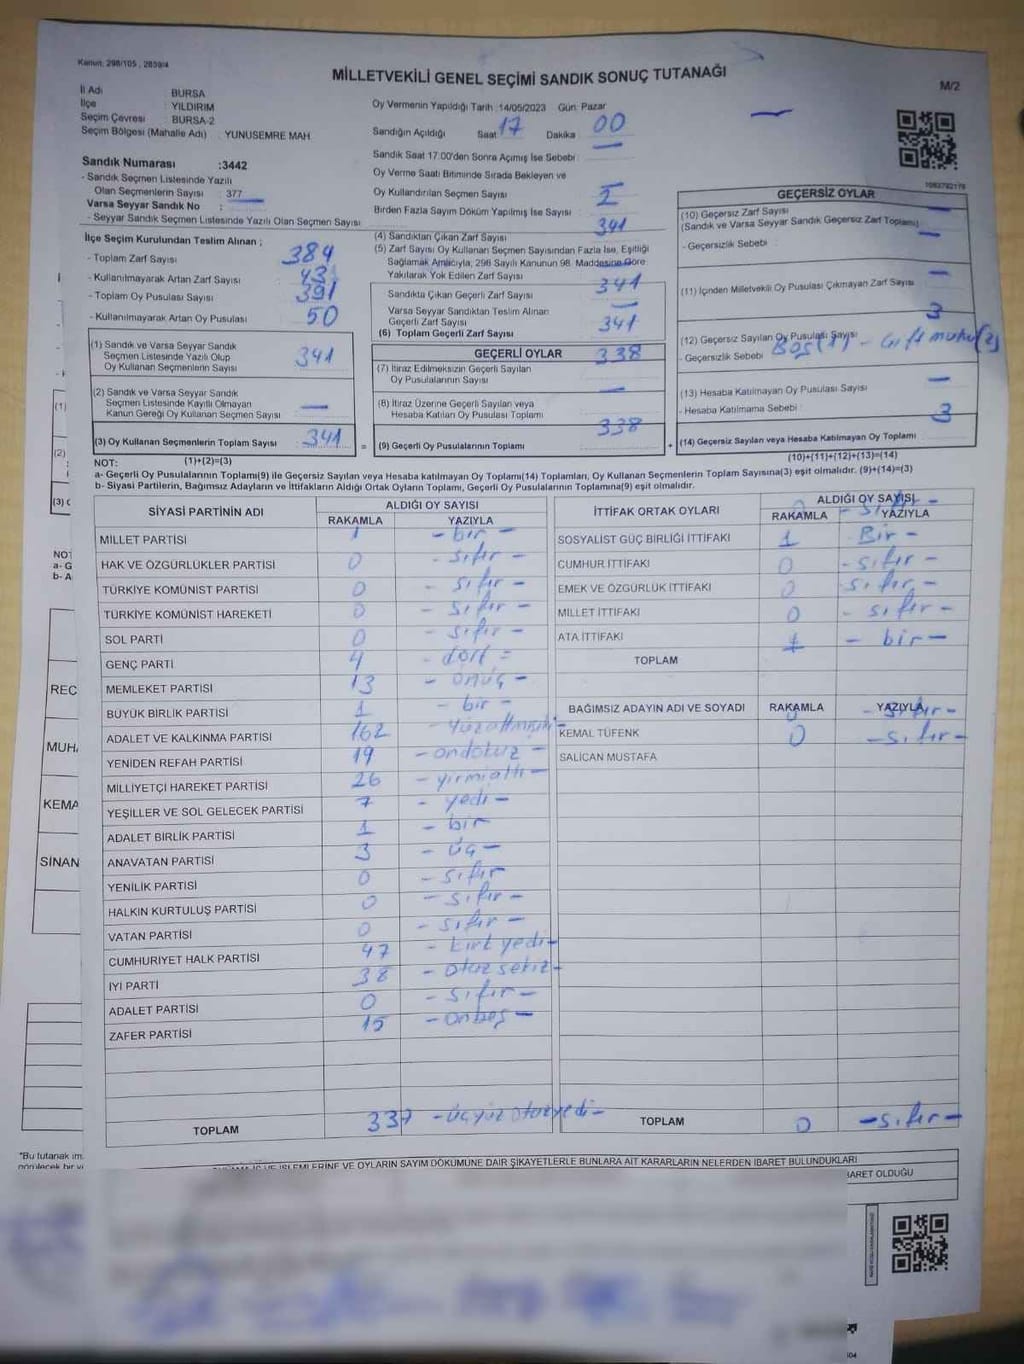 Kanun: 298/105 , 2839/4
MİLLETVEKİLİ GENEL SEÇİMİ SANDIK SONUÇ TUTANAĞI
M/2
İl Adı BURSA
İlçe YILDIRIM
Seçim Çevresi : BURSA-2
Seçim Bölgesi (Mahalle Adı) : YUNUSEMRE MAH
Sandık Numarası :3442
- Sandık Seçmen Listesinde Yazılı
Olan Seçmenlerin Sayısı : 377
Varsa Seyyar Sandık No :
- Seyyar Sandık Seçmen Listesinde Yazılı Olan Seçmen Sayısı
Oy Vermenin Yapıldığı Tarih :14/05/2023 Gün: Pazar
Sandığın Açıldığı Saat 17 Dakika 00
Sandık Saat 17.00'den Sonra Açılmış İse Sebebi :
Oy Verme Saati Bitiminde Sırada Bekleyen ve
Oy Kullandırılan Seçmen Sayısı
Birden Fazla Sayım Döküm Yapılmış İse Sayısı
İlçe Seçim Kurulundan Teslim Alınan ;
- Toplam Zarf Sayısı 384
- Kullanılmayarak Artan Zarf Sayısı 43
- Toplam Oy Pusulası Sayısı 391
- Kullanılmayarak Artan Oy Pusulası 50
(1) Sandık ve Varsa Seyyar Sandık
Seçmen Listesinde Yazılı Olup
Oy Kullanan Seçmenlerin Sayısı 341
(2) Sandık ve Varsa Seyyar Sandık
Seçmen Listesinde Kayıtlı Olmayan
Kanun Gereği Oy Kullanan Seçmen Sayısı —
(3) Oy Kullanan Seçmenlerin Toplam Sayısı 341
(4) Sandıktan Çıkan Zarf Sayısı 341
(5) Zarf Sayısı Oy Kullanan Seçmen Sayısından Fazla İse, Eşitliği
Sağlamak Amacıyla; 298 Sayılı Kanunun 98. Maddesine Göre
Yakılarak Yok Edilen Zarf Sayısı
Sandıkta Çıkan Geçerli Zarf Sayısı 341
Varsa Seyyar Sandıktan Teslim Alınan
Geçerli Zarf Sayısı —
(6) Toplam Geçerli Zarf Sayısı 341
GEÇERLİ OYLAR
(7) İtiraz Edilmeksizin Geçerli Sayılan
Oy Pusulalarının Sayısı 338
(8) İtiraz Üzerine Geçerli Sayılan veya
Hesaba Katılan Oy Pusulası Toplamı —
(9) Geçerli Oy Pusulalarının Toplamı 338
GEÇERSİZ OYLAR
1083782178
(10) Geçersiz Zarf Sayısı
(Sandık ve Varsa Seyyar Sandık Geçersiz Zarf Toplamı) —
- Geçersizlik Sebebi : —
(11) İçinden Milletvekili Oy Pusulası Çıkmayan Zarf Sayısı —
(12) Geçersiz Sayılan Oy Pusulası Sayısı 3
- Geçersizlik Sebebi Boş(1) - Çift mühür(2)
(13) Hesaba Katılmayan Oy Pusulası Sayısı —
- Hesaba Katılmama Sebebi :
(14) Geçersiz Sayılan veya Hesaba Katılmayan Oy Pusulası Toplamı 3
NOT: (1)+(2)=(3)
(10)+(11)+(12)+(13)=(14)
a- Geçerli Oy Pusulalarının Toplamı(9) ile Geçersiz Sayılan veya Hesaba katılmayan Oy Toplamı(14) Toplamları, Oy Kullanan Seçmenlerin Toplam Sayısına(3) eşit olmalıdır. (9)+(14)=(3)
b- Siyasi Partilerin, Bağımsız Adayların ve İttifakların Aldığı Ortak Oyların Toplamı, Geçerli Oy Pusulalarının Toplamına(9) eşit olmalıdır.
SİYASİ PARTİNİN ADI ALDIĞI OY SAYISI
RAKAMLA YAZIYLA
MİLLET PARTİSİ 1 - bir -
HAK VE ÖZGÜRLÜKLER PARTİSİ 0 - sıfır -
TÜRKİYE KOMÜNİST PARTİSİ 0 - sıfır -
TÜRKİYE KOMÜNİST HAREKETİ 0 - sıfır -
SOL PARTİ 0 - sıfır -
GENÇ PARTİ 4 - dört =
MEMLEKET PARTİSİ 13 - onüç -
BÜYÜK BİRLİK PARTİSİ 1 - bir -
ADALET VE KALKINMA PARTİSİ 162 - yüzaltmışiki -
YENİDEN REFAH PARTİSİ 19 - ondokuz -
MİLLİYETÇİ HAREKET PARTİSİ 26 - yirmialtı -
YEŞİLLER VE SOL GELECEK PARTİSİ 7 - yedi -
ADALET BİRLİK PARTİSİ 1 - bir
ANAVATAN PARTİSİ 3 - üç -
YENİLİK PARTİSİ 0 - sıfır
HALKIN KURTULUŞ PARTİSİ 0 - sıfır -
VATAN PARTİSİ 0 - sıfır -
CUMHURİYET HALK PARTİSİ 47 - kırk yedi -
İYİ PARTİ 38 - otuz sekiz -
ADALET PARTİSİ 0 - sıfır -
ZAFER PARTİSİ 15 - onbeş -
TOPLAM 337 - üçyüz otuzyedi -
İTTİFAK ORTAK OYLARI ALDIĞI OY SAYISI
RAKAMLA YAZIYLA
0 - sıfır -
SOSYALİST GÜÇ BİRLİĞİ İTTİFAKI 1 Bir -
CUMHUR İTTİFAKI 0 - sıfır -
EMEK VE ÖZGÜRLÜK İTTİFAKI 0 - sıfır -
MİLLET İTTİFAKI 0 - sıfır -
ATA İTTİFAKI 1 - bir -
TOPLAM
BAĞIMSIZ ADAYIN ADI VE SOYADI RAKAMLA YAZIYLA
0 - sıfır -
KEMAL TÜFENK 0 - sıfır -
SALİCAN MUSTAFA
TOPLAM 0 - sıfır -
(1)
(2)
(3) O
NOT
a- G
b- A
REC
MUHA
KEMA
SİNAN
*Bu tutanak im
İŞLEMLERİNE VE OYLARIN SAYIM DÖKÜMÜNE DAİR ŞİKAYETLERLE BUNLARA AİT KARARLARIN NELERDEN İBARET BULUNDUKLARI
İBARET OLDUĞU